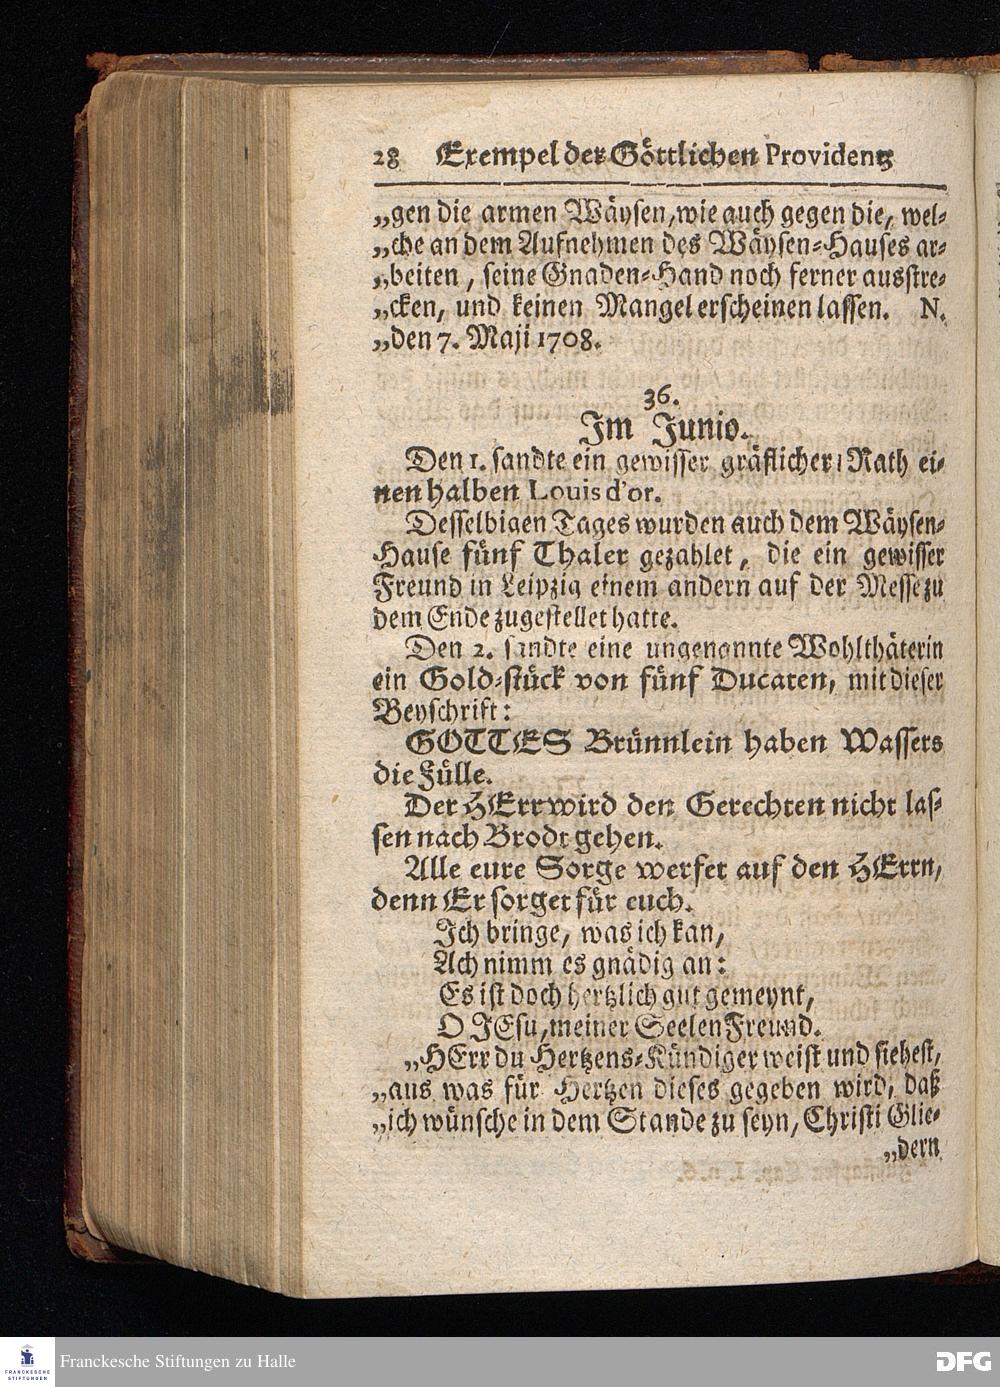 28 Exempel der Göttlichen Providentz
„gen die armen Wäysen, wie auch gegen die, wel-
„che an dem Aufnehmen des Wäysen-Hauses ar-
„beiten, seine Gnaden-Hand noch ferner ausstre-
„cken, und keinen Mangel erscheinen lassen. N.
„den 7. Maji 1708.
36.
Im Junio.
Den 1. sandte ein gewisser gräflicher Rath ei-
nen halben Louis d'or.
Desselbigen Tages wurden auch dem Wäysen-
Hause fünf Thaler gezahlet, die ein gewisser
Freund in Leipzig einem andern auf der Messe zu
dem Ende zugestellet hatte.
Den 2. sandte eine ungenannte Wohlthäterin
ein Gold-stück von fünf Ducaten, mit dieser
Beyschrift:
GOTTES Brünnlein haben Wassers
die Fülle.
Der HErr wird den Gerechten nicht las-
sen nach Brodt gehen.
Alle eure Sorge werfet auf den HErrn,
denn Er sorget für euch.
Ich bringe, was ich kan,
Ach nimm es gnädig an:
Es ist doch hertzlich gut gemeynt,
O JEsu, meiner Seelen Freund.
„HErr du Hertzens-Kündiger weist und siehest,
„aus was für Hertzen dieses gegeben wird, daß
„ich wünsche in dem Stande zu seyn, Christi Glie-
„dern
FRANCKESCHE
STIFTUNGEN
Franckesche Stiftungen zu Halle
DFG